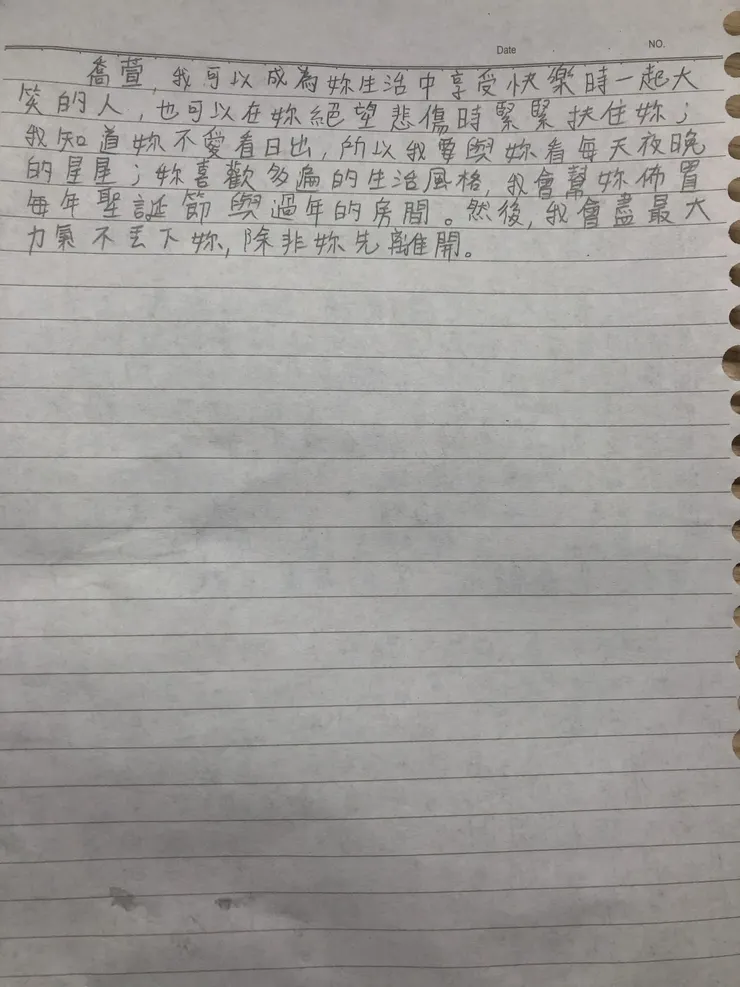 Date NO.
喬萱,我可以成為妳生活中享受快樂時一起大
笑的人,也可以在妳絕望悲傷時緊緊扶住妳;
我知道妳不愛看日出,所以我要與妳看每天夜晚
的星星;妳喜歡多滿的生活風格,我會幫妳佈置
每年聖誕節與過年的房間。然後,我會盡最大
力氣不丟下妳,除非妳先離開。